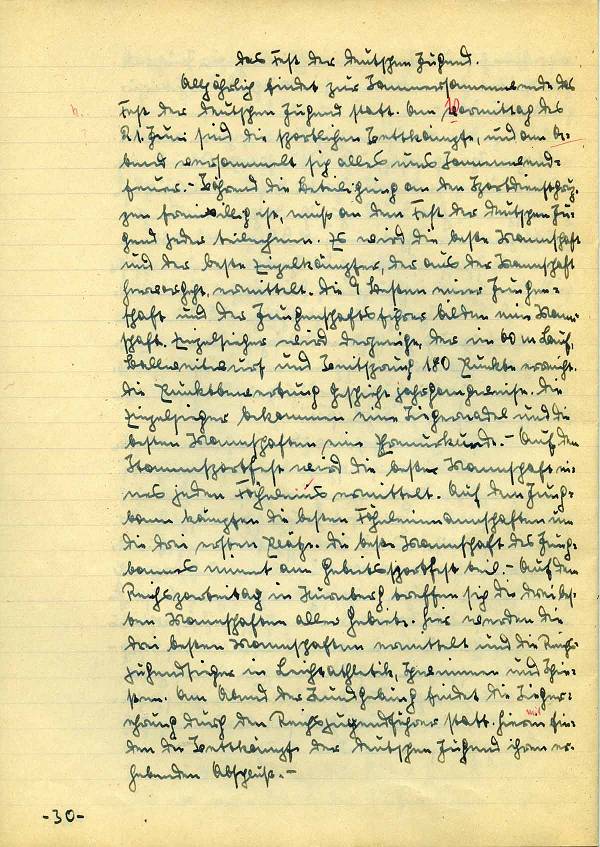 Das Fest der deutschen Jugend.
Alljährlich findet zur Sommersonnenwende das
Fest der deutschen Jugend statt. Am Vormittag des
21. Juni sind die sportlichen Wettkämpfe, und am A-
bend versammelt sich alles ums Sonnenwend-
feuer. - Während die Beteiligung an den
freiwillig ist, muß an dem Fest der deutschen Ju-
gend jeder teilnehmen. Es wird die beste Mannschaft
und der beste Einzelkämpfer, der aus der Mannschaft
hervorgeht, ermittelt. Die 9 besten einer Jungen-
schaft und der Jungenschaftsführer bilden eine Mann-
schaft. Einzelsieger wird derjenige, der in 60 m Lauf,
Ballweitwurf und Weitsprung 180 Punkte erreicht.
Die Punktbewertung geschieht jahrgangweise. Die
Einzelsieger bekommen eine Siegernadel und die
besten Mannschaften eine Ehrenurkunde. - Auf dem
Stammsportfest wird die beste Mannschaft ei-
nes jeden Fähnleins ermittelt. Auf dem Jung-
bann kämpfen die besten Fähnleinmannschaften um
die drei ersten Plätze. Die beste Mannschaft des Jung-
bannes nimmt am Gebietssportfest teil. - Auf dem
Reichsparteitag in Nürnberg treffen sich die drei bes-
ten Mannschaften aller Gebiete. Hier werden die
drei besten Mannschaften ermittelt und die Reichs-
jugendsieger in Leichtathletik, Schwimmen und Schie-
ßen. Am Abend der Kundgebung findet die Siegere-
ehrung durch den Reichsjugendführer statt. Hiermit fin-
den die Wettkämpfe der deutschen Jugend ihren er-
hebenden Abschluß. -
-30-